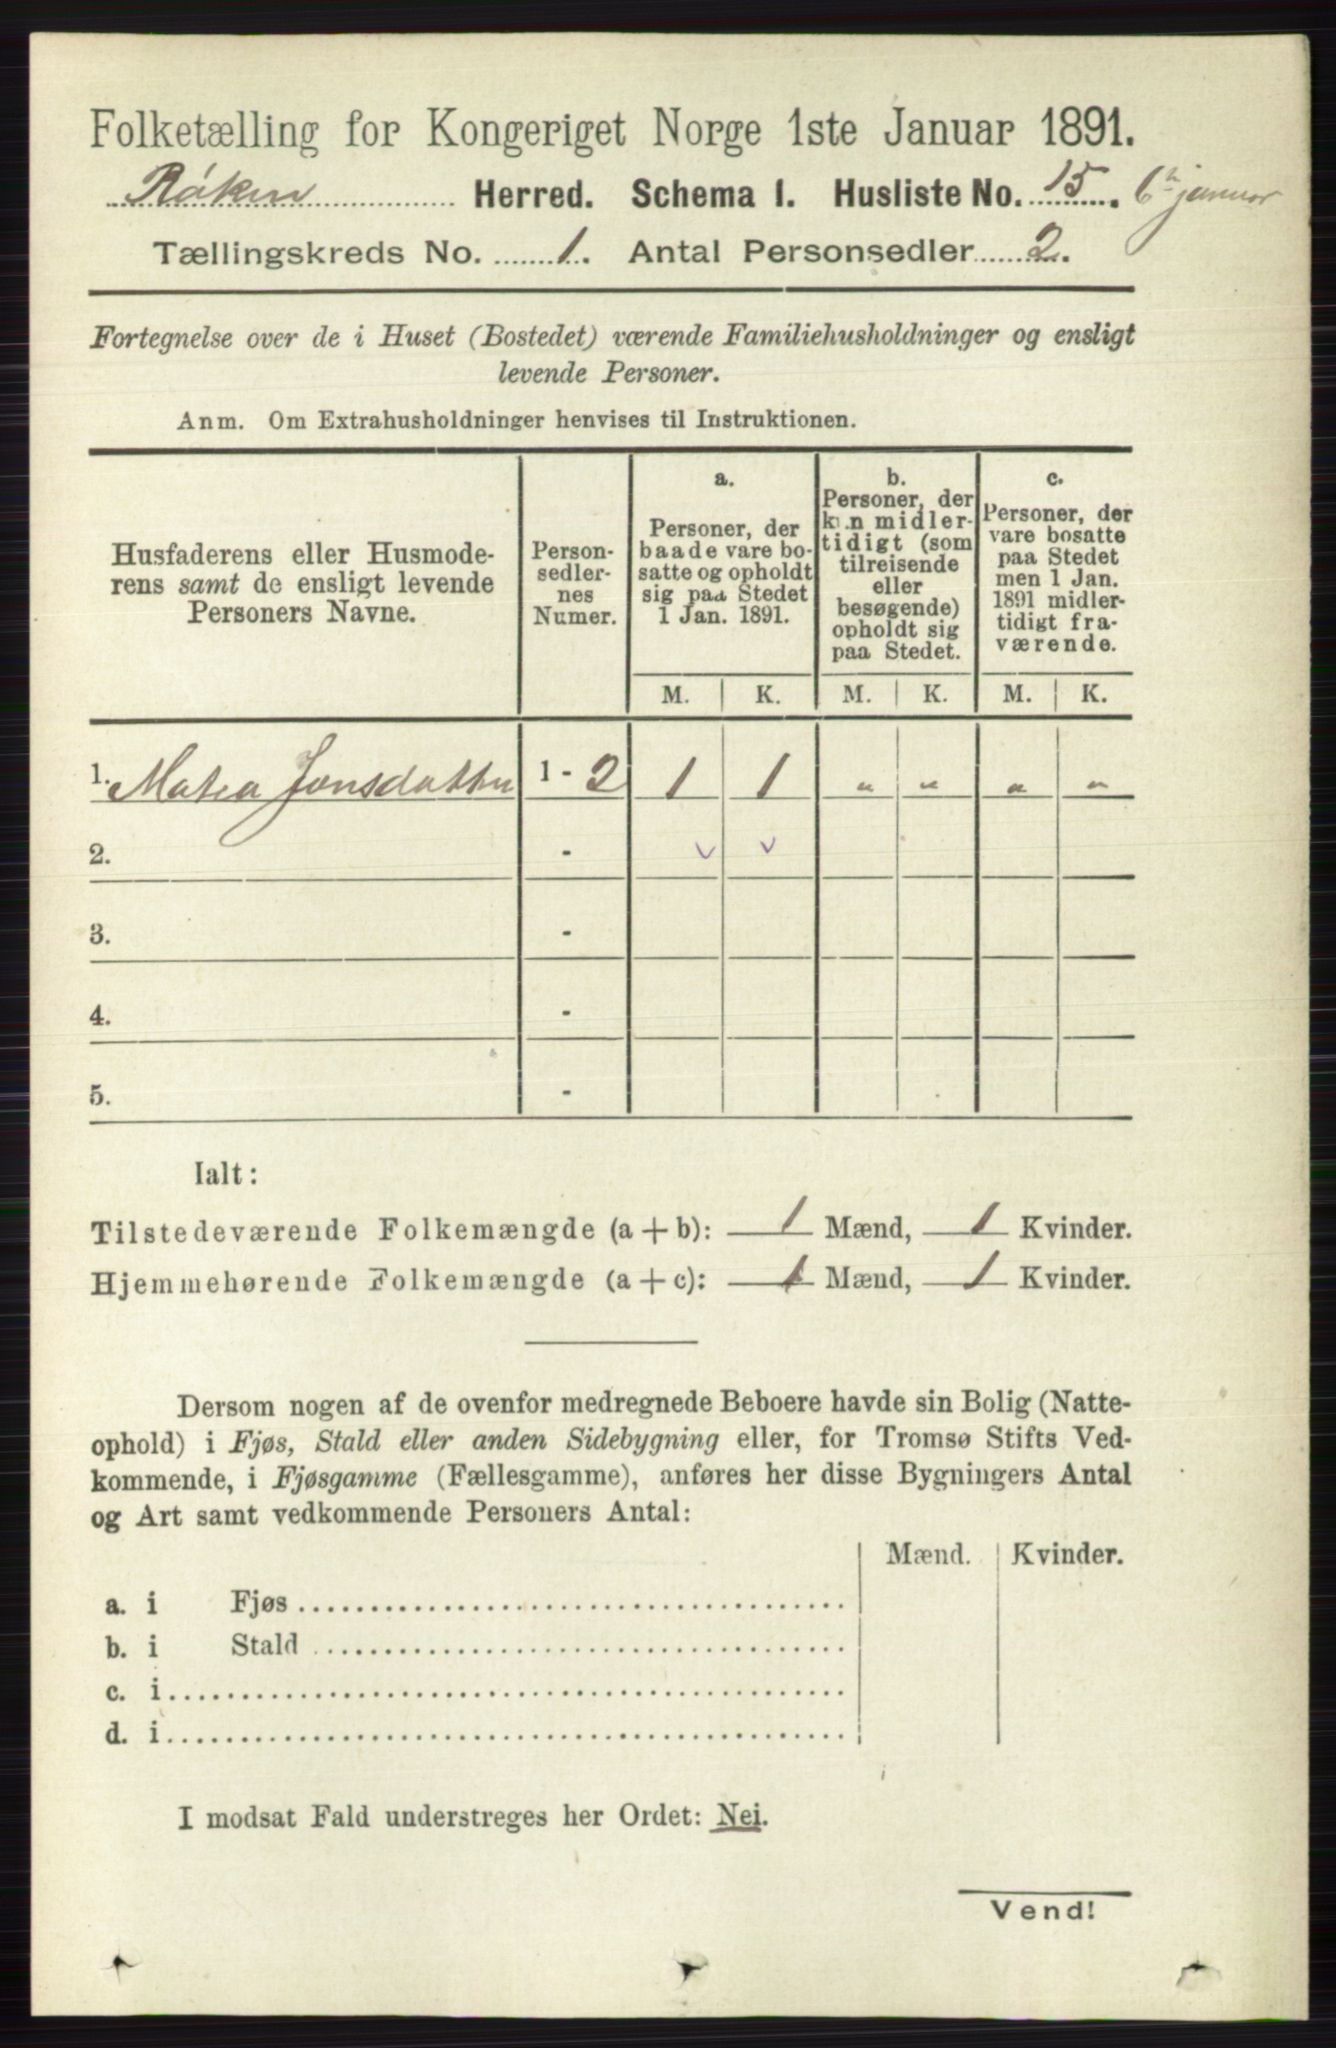 Folketælling for Kongeriget Norge 1ste Januar 1891.
Røken Herred. Schema 1. Husliste No. 15. 6te januar
Tællingskreds No. 1. Antal Personsedler 2.
Fortegnelse over de i Huset (Bostedet) værende Familiehusholdninger og ensligt
levende Personer.
Anm. Om Extrahusholdninger henvises til Instruktionen.
Husfaderens eller Husmode-
rens samt de ensligt levende
Personers Navne.
Person-
sedler-
nes
Numer.
a.
Personer, der
baade vare bo-
satte og opholdt
sig paa Stedet
1 Jan. 1891.
b.
Personer, der
kun midler-
tidigt (som
tilreisende
eller
besøgende)
opholdt sig
paa Stedet.
c.
Personer, der
vare bosatte
paa Stedet
men 1 Jan.
1891 midler-
tidigt fra-
værende.
M. K. M. K. M. K.
1. Matea Jonsdatter 1 - 2 1 1 " " " "
2. - v v
3. -
4. -
5. -
Ialt:
Tilstedeværende Folkemængde (a + b): 1 Mænd, 1 Kvinder.
Hjemmehørende Folkemængde (a + c): 1 Mænd, 1 Kvinder.
Dersom nogen af de ovenfor medregnede Beboere havde sin Bolig (Natte-
ophold) i Fjøs, Stald eller anden Sidebygning eller, for Tromsø Stifts Ved-
kommende, i Fjøsgamme (Fællesgamme), anføres her disse Bygningers Antal
og Art samt vedkommende Personers Antal:
Mænd. Kvinder.
a. i Fjøs
b. i Stald
c. i
d. i
I modsat Fald understreges her Ordet: Nei.
Vend!